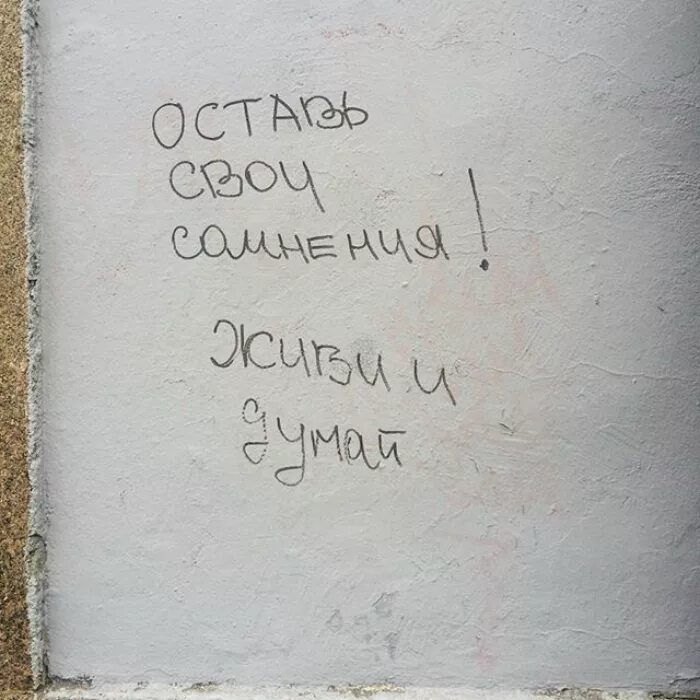 ОСТАВЬ
СВОИ
СОМНЕНИЯ!
ЖИВИ И
ДУМАЙ